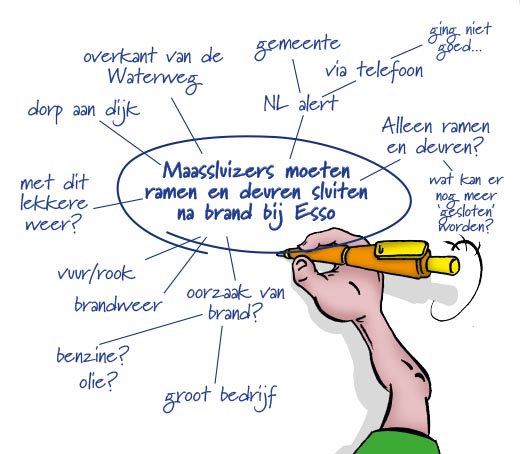 ging niet
goed...
gemeente
overkant van de
Waterweg
via telefoon
dorp aan dijk
NL alert
Alleen ramen
en deuren?
Maassluizers moeten
ramen en deuren sluiten
na brand bij Esso
met dit
lekkere
weer?
wat kan er
nog meer
'gesloten'
worden?
vuur/rook
brandweer
oorzaak van
brand?
benzine?
olie?
groot bedrijf